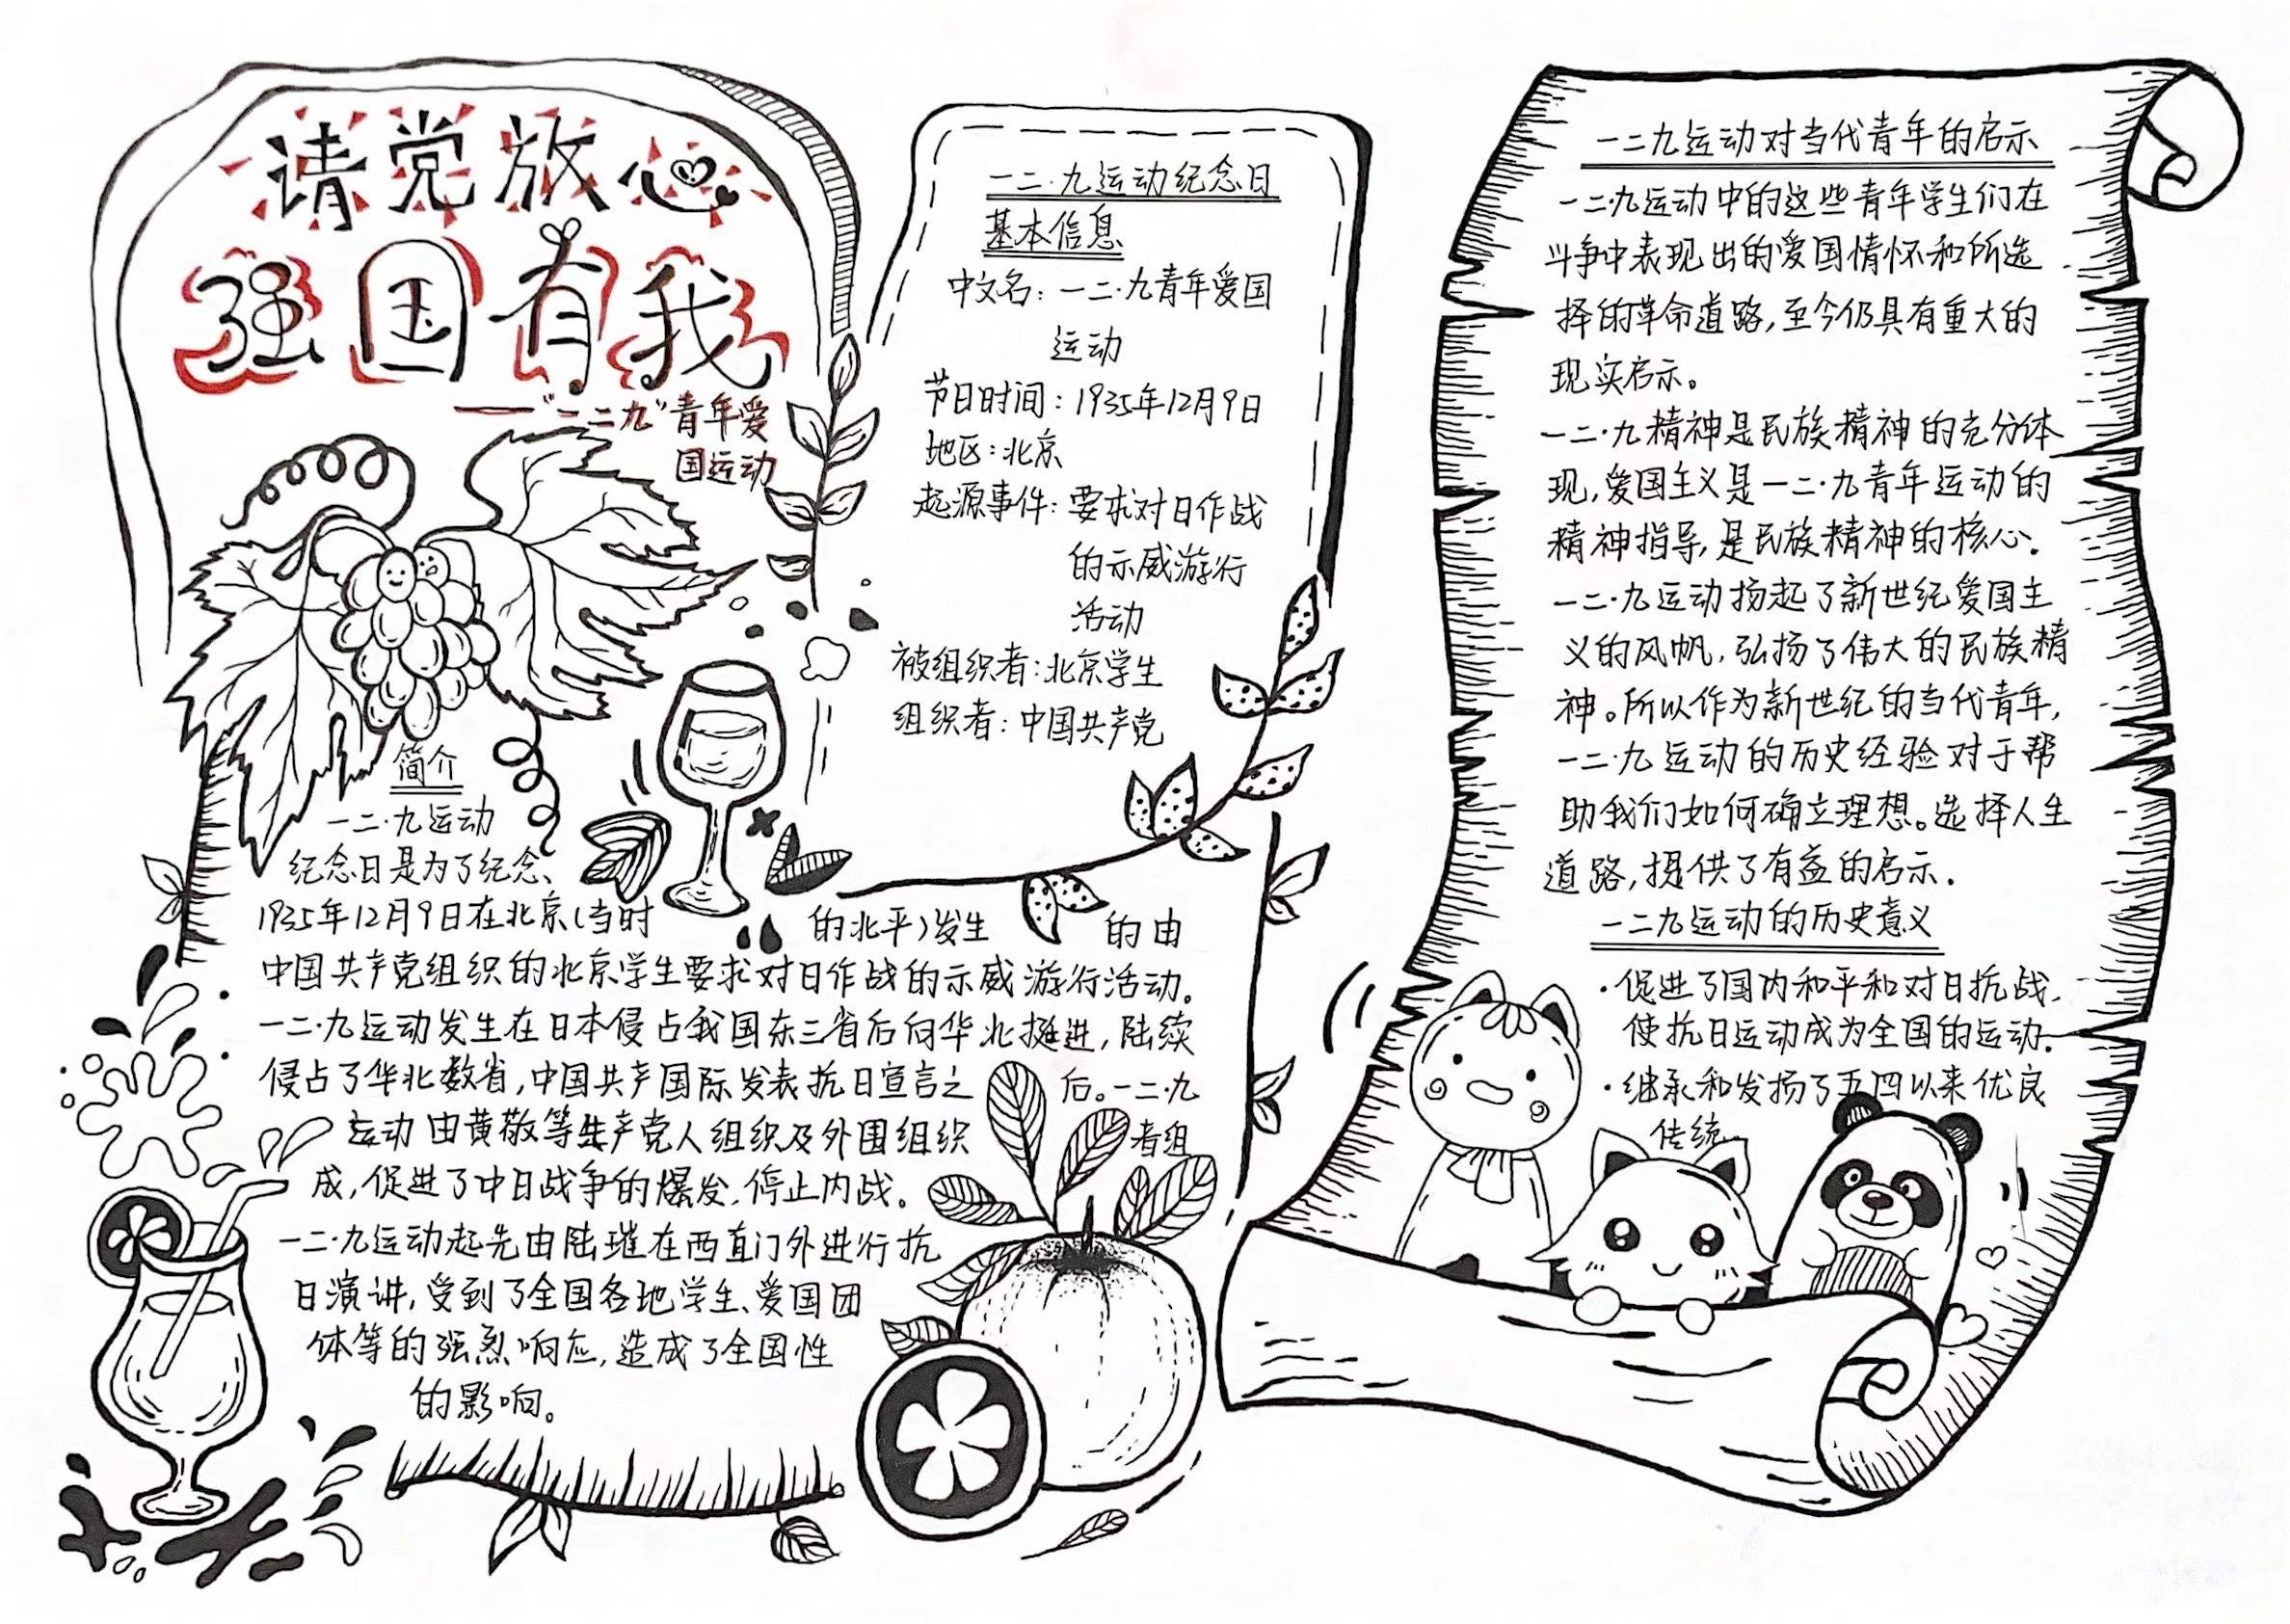 请党放心
强国有我
——“一二九”青年爱
国运动
简介
一二·九运动
纪念日是为了纪念、
1935年12月9日在北京(当时的北平)发生的由
中国共产党组织的北京学生要求对日作战的示威游行活动。
一二·九运动发生在日本侵占我国东三省后向华北挺进,陆续
侵占了华北数省,中国共产国际发表抗日宣言之后。一二·九
运动由黄敬等共产党人组织及外围组织者组
成,促进了中日战争的爆发,停止内战。
一二·九运动起先由陆璀在西直门外进行抗
日演讲,受到了全国各地学生、爱国团
体等的强烈响应,造成了全国性
的影响。
一二·九运动纪念日
基本信息
中文名:一二·九青年爱国
运动
节日时间:1935年12月9日
地区:北京
起源事件:要求对日作战
的示威游行
活动
被组织者:北京学生
组织者:中国共产党
一二九运动对当代青年的启示
一二·九运动中的这些青年学生们在
斗争中表现出的爱国情怀和所选
择的革命道路,至今仍具有重大的
现实启示。
一二·九精神是民族精神的充分体
现,爱国主义是一二·九青年运动的
精神指导,是民族精神的核心.
一二·九运动扬起了新世纪爱国主
义的风帆,弘扬了伟大的民族精
神。所以作为新世纪的当代青年,
一二·九运动的历史经验对于帮
助我们如何确立理想。选择人生
道路,提供了有益的启示.
一二九运动的历史意义
·促进了国内和平和对日抗战.
使抗日运动成为全国的运动.
·继承和发扬了五四以来优良
传统.